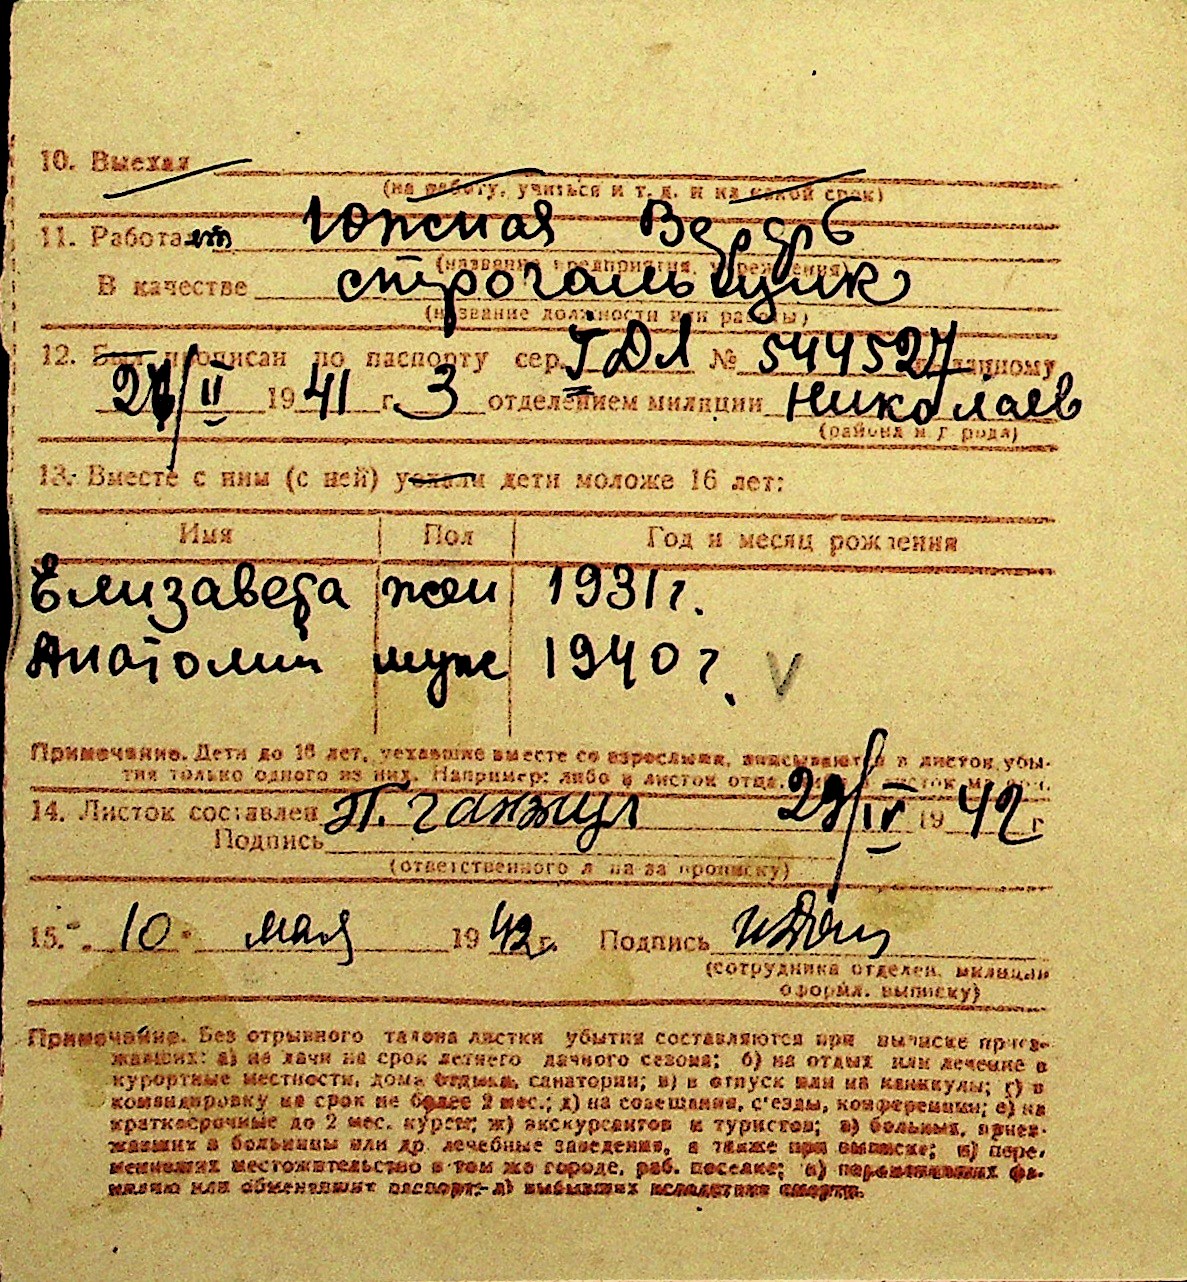 10. Выехал
(на работу, учиться и т. д. и на какой срок)
11. Работает Южная Верфь
(название предприятия, учреждения)
В качестве строгальщик
(название должности или работы)
12. Был прописан по паспорту сер. I ДЛ № 544527 выданному
/II 1941 г. 3 отделением милиции Николаев
(района и города)
13. Вместе с ним (с ней) уехали дети моложе 16 лет:
Имя Пол Год и месяц рождения
Елизавета жен 1931 г.
Анатолий муж 1940 г. V
Примечание. Дети до 16 лет, уехавшие вместе со взрослыми, вписываются в листок убы-
тия только одного из них. Например: либо в листок отца, листок
14. Листок составлен П. Ганжул 29/IV 1942 г
Подпись
(ответственного л на за прописку)
15. „ 10 " мая 1942 г. Подпись
(сотрудника отделен. милиции
оформл. выписку)
Примечание. Без отрывного талона листки убытия составляются при выписке приез-
жавших: а) на дачи на срок летнего дачного сезона; б) на отдых или лечение в
курортные местности, дома отдыха, санатории; в) в отпуск или на каникулы; г) в
командировку на срок не более 2 мес.; д) на совещания, с'езды, конференции; е) на
краткосрочные до 2 мес. курсы; ж) экскурсантов и туристов; з) больных, приез-
жавших в больницы или др. лечебные заведения, а также при выписке; и) пере-
менивших местожительство в том же городе, раб. поселке; к) переменивших фа-
милию или обменявших паспорт; л) выбывших вследствие смерти.